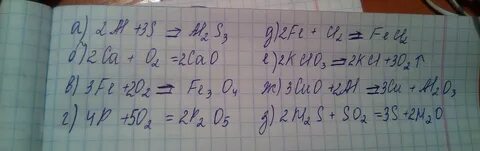 а) 2Al + 3S = Al₂S₃
б) 2Ca + O₂ = 2CaO
в) 3Fe + 2O₂ = Fe₃O₄
г) 4P + 5O₂ = 2P₂O₅
д) 2Fe + Cl₂ = FeCl₂
е) 2KClO₃ = 2KCl + 3O₂↑
ж) 3CuO + 2Al = 3Cu + Al₂O₃
з) 2H₂S + SO₂ = 3S + 2H₂O